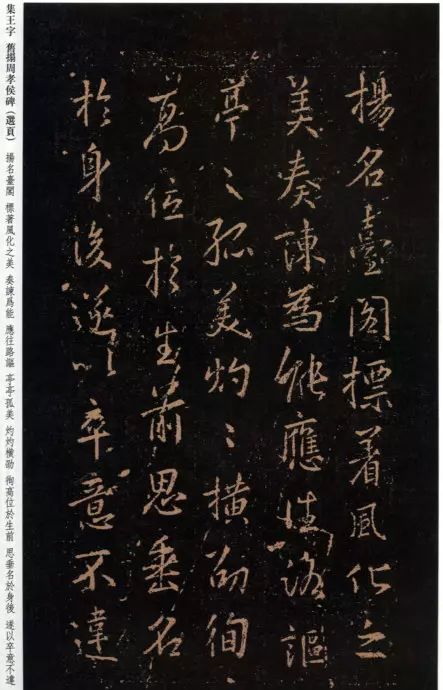 揚名臺閣標着風化之
美奏諫為能應往路謳
亭〻孤美灼〻橫劭徇〻
高位於生前思垂名
於身後遂以卒意不違
集王字 舊搨周孝侯碑（選頁） 揚名臺閣 標著風化之美 奏諫爲能 應往路謳 亭亭孤美 灼灼橫劭 徇高位於生前 思垂名於身後 遂以卒意不違